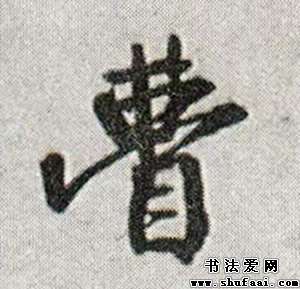 曹
书法爱网
www.shufaai.com